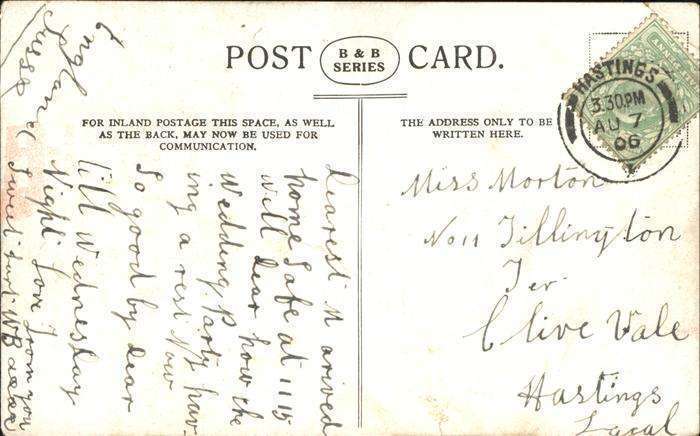 POST CARD.
B & B
SERIES
FOR INLAND POSTAGE THIS SPACE, AS WELL
AS THE BACK, MAY NOW BE USED FOR
COMMUNICATION.
THE ADDRESS ONLY TO BE
WRITTEN HERE.
HASTINGS
3.30PM
AU 7
06
Miss Morton
No 11 Tillington
Ter
Clive Vale
Hastings
Local
Dearest M arived
home safe at 11 15
well dear how the
wedding party hav-
ing a rest Now
So good by dear
till Wednesday
Night Love from you
Sweet hart WB
England
Sussex